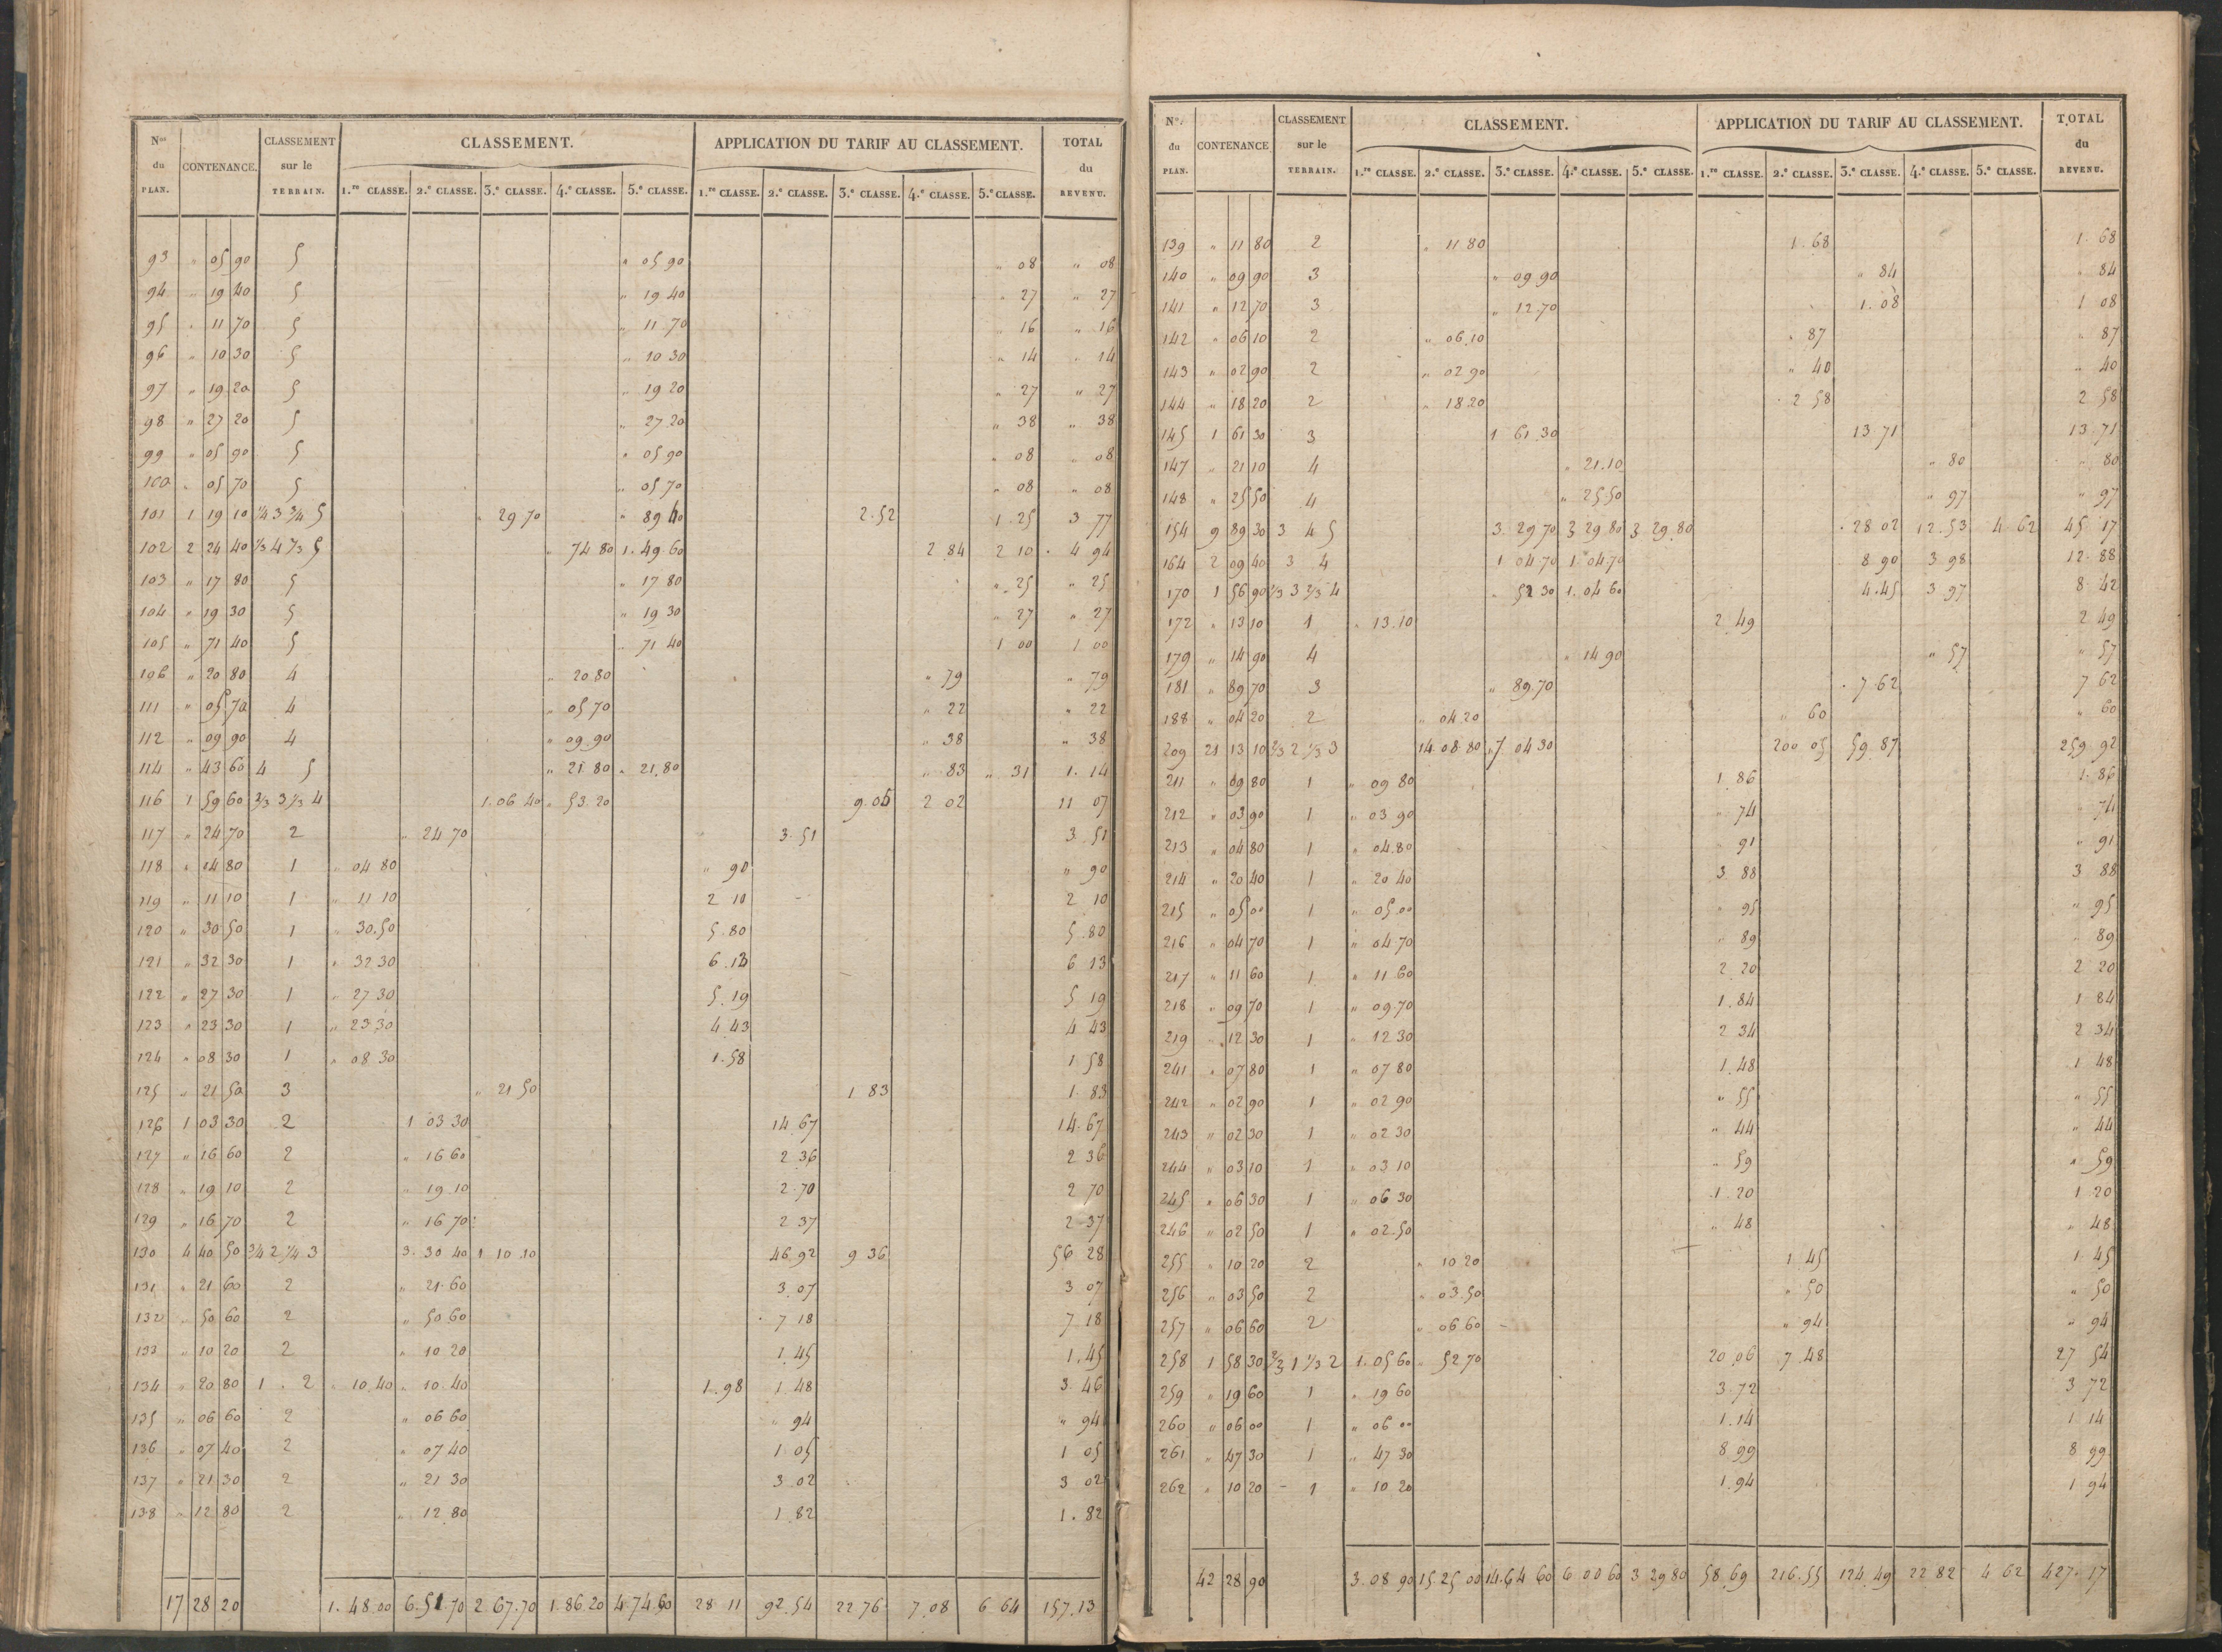 Nos du PLAN. CONTENANCE. CLASSEMENT sur le TERRAIN. CLASSEMENT. APPLICATION DU TARIF AU CLASSEMENT. TOTAL du REVENU.
1.re CLASSE. 2.e CLASSE. 3.e CLASSE. 4.e CLASSE. 5.e CLASSE. 1.re CLASSE. 2.e CLASSE. 3.e CLASSE. 4.e CLASSE. 5.e CLASSE.
93 " 05 90 5 " 05 90 " 08 " 08
94 " 19 40 5 " 19 40 " 27 " 27
95 " 11 70 5 " 11 70 " 16 " 16
96 " 10 30 5 " 10 30 " 14 " 14
97 " 19 20 5 " 19 20 " 27 " 27
98 " 27 20 5 " 27 20 " 38 " 38
99 " 05 90 5 " 05 90 " 08 " 08
100 " 05 70 5 " 05 70 " 08 " 08
101 1 19 10 1/4 3 3/4 5 " 29 70 " 89 40 2.52 1.25 3 77
102 2 24 40 1/3 4 2/3 5 " 74 80 1.49.60 2 84 2 10 4 94
103 " 17 80 5 " 17 80 " 25 " 25
104 " 19 30 5 " 19 30 " 27 " 27
105 " 71 40 5 " 71 40 1 00 1 00
106 " 20 80 4 " 20.80 " 79 " 79
111 " 05 70 4 " 05 70 " 22 " 22
112 " 09 90 4 " 09.90 " 38 " 38
114 " 43 60 4 5 " 21 80 " 21.80 " 83 " 31 1.14
116 1 59 60 2/3 3 1/3 4 1.06 40 " 53.20 9.05 2 02 11 07
117 " 24 70 2 " 24 70 3.51 3.51
118 " 04 80 1 " 04 80 " 90 " 90
119 " 11 10 1 " 11 10 2 10 2 10
120 " 30 50 1 " 30.50 5.80 5.80
121 " 32 30 1 " 32 30 6.13 6 13
122 " 27 30 1 " 27 30 5.19 5 19
123 " 23 30 1 " 23 30 4 43 4 43
124 " 08 30 1 " 08 30 1.58 1 58
125 " 21 50 3 " 21 50 1 83 1.83
126 1 03 30 2 1 03 30 14 67 14.67
127 " 16 60 2 " 16 60 2 36 2 36
128 " 19 10 2 " 19 10 2.70 2 70
129 " 16 70 2 " 16 70 2 37 2 37
130 4 40 50 3/4 2 1/4 3 3.30 40 1 10 10 46.92 9 36 56 28
131 " 21 60 2 " 21.60 3.07 3 07
132 " 50 60 2 " 50 60 7 18 7 18
133 " 10 20 2 " 10 20 1.45 1.45
134 " 20 80 1 . 2 " 10.40 " 10.40 1.98 1.48 3.46
135 " 06 60 2 " 06 60 " 94 " 94
136 " 07 40 2 " 07 40 1 05 1 05
137 " 21 30 2 " 21 30 3 02 3 02
138 " 12 80 2 " 12 80 1.82 1.82
17 28 20 1.48 00 6.51.70 2 67.70 1.86 20 4.74.60 28 11 92.54 22 76 7.08 6 64 157.13
Nos. du PLAN. CONTENANCE CLASSEMENT sur le TERRAIN. CLASSEMENT. APPLICATION DU TARIF AU CLASSEMENT. TOTAL du REVENU.
1.re CLASSE. 2.e CLASSE. 3.e CLASSE. 4.e CLASSE. 5.e CLASSE. 1.re CLASSE. 2.e CLASSE. 3.e CLASSE. 4.e CLASSE. 5.e CLASSE.
139 " 11 80 2 " 11 80 1.68 1.68
140 " 09 90 3 " 09 90 " 84 " 84
141 " 12 70 3 " 12.70 1.08 1 08
142 " 06 10 2 " 06.10 " 87 " 87
143 " 02 90 2 " 02 90 " 40 " 40
144 " 18 20 2 " 18.20 2 58 2 58
145 1 61 30 3 1 61.30 13 71 13 71
147 " 21 10 4 " 21.10 " 80 " 80
148 " 25 50 4 " 25.50 " 97 " 97
154 9 89 30 3 4 5 3.29 70 3 29 80 3 29.80 28 02 12.53 4 62 45 17
164 2 09 40 3 4 1 04.70 1.04.70 8 90 3 98 12.88
170 1 56 90 1/3 3 2/3 4 " 52 30 1.04 60 4.45 3 97 8 42
172 " 13 10 1 " 13.10 2 49 2 49
179 " 14 90 4 " 14 90 " 57 " 57
181 " 89 70 3 " 89.70 7.62 7 62
188 " 04 20 2 " 04 20 " 60 " 60
209 21 13 10 2/3 2 1/3 3 14.08.80 7.04 30 200 05 59.87 259 92
211 " 09 80 1 " 09 80 1.86 1.86
212 " 03 90 1 " 03.90 " 74 " 74
213 " 04 80 1 " 04.80 " 91 " 91
214 " 20 40 1 " 20 40 3 88 3 88
215 " 05 00 1 " 05.00 " 95 " 95
216 " 04 70 1 " 04.70 " 89 " 89
217 " 11 60 1 " 11 60 2.20 2 20
218 " 09 70 1 " 09.70 1.84 1 84
219 " 12 30 1 " 12 30 2 34 2 34
241 " 07 80 1 " 07 80 1.48 1 48
242 " 02 90 1 " 02 90 " 55 " 55
243 " 02 30 1 " 02 30 " 44 " 44
244 " 03 10 1 " 03 10 " 59 " 59
245 " 06 30 1 " 06 30 1.20 1 20
246 " 02 50 1 " 02.50 " 48 " 48
255 " 10 20 2 " 10 20 1.45 1.45
256 " 03 50 2 " 03.50 " 50 " 50
257 " 06 60 2 " 06 60 " 94 " 94
258 1 58 30 2/3 1 1/3 2 1.05 60 " 52 70 20.06 7.48 27 54
259 " 19 60 1 " 19 60 3.72 3 72
260 " 06 00 1 " 06 00 1.14 1 14
261 " 47 30 1 " 47 30 8 99 8 99
262 " 10 20 - 1 " 10 20 1.94 1 94
42 28 90 3.08 90 15.25 00 14.64 60 6 00 60 3 29 80 58.69 216.55 124.49 22 82 4 62 427.17